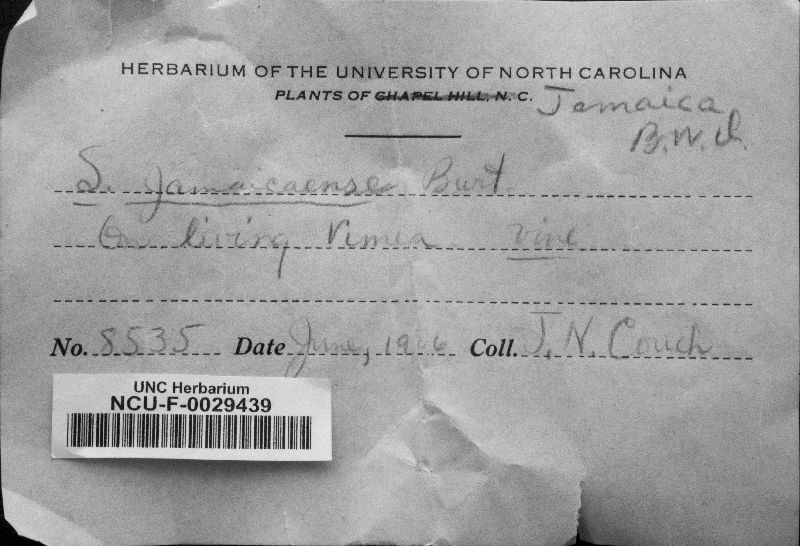 HERBARIUM OF THE UNIVERSITY OF NORTH CAROLINA
PLANTS OF CHAPEL HILL, N. C. Jamaica
B.W.I.
S. jamaicaense Burt
On living Vimea vine
No. 8535 Date June, 1926 Coll. J. N. Couch
UNC Herbarium
NCU-F-0029439